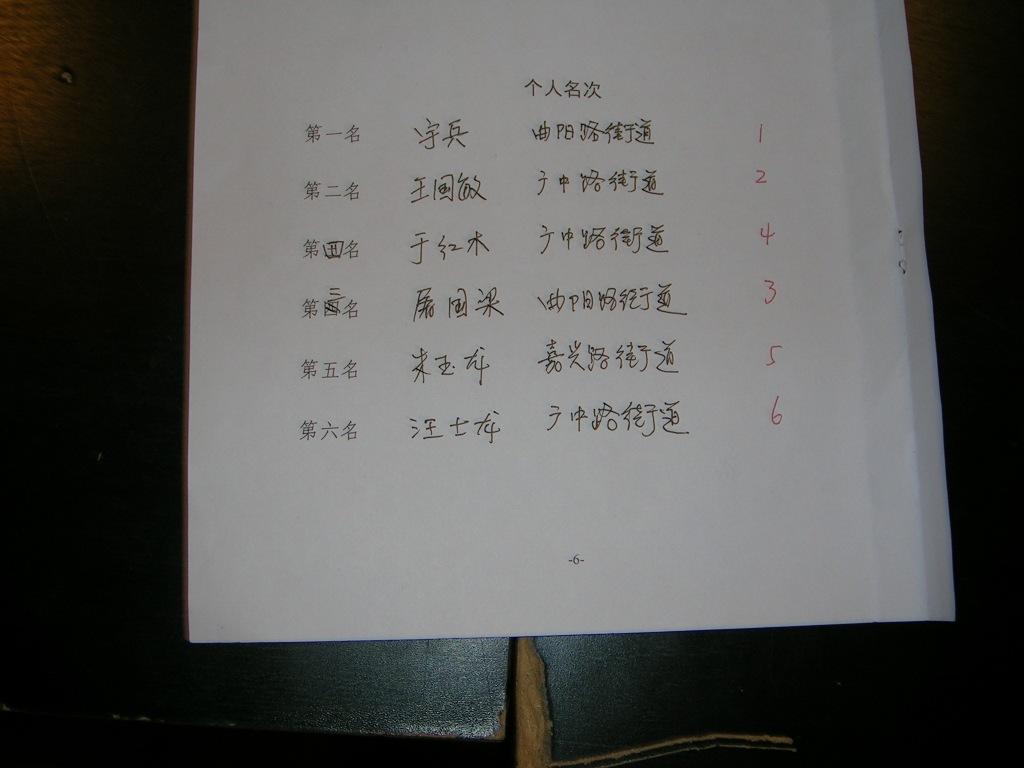 个人名次
第一名 宇兵 曲阳路街道 1
第二名 王国敏 广中路街道 2
第四名 于红木 广中路街道 4
第三名 屠国梁 曲阳路街道 3
第五名 朱玉龙 嘉兴路街道 5
第六名 汪士龙 广中路街道 6
-6-